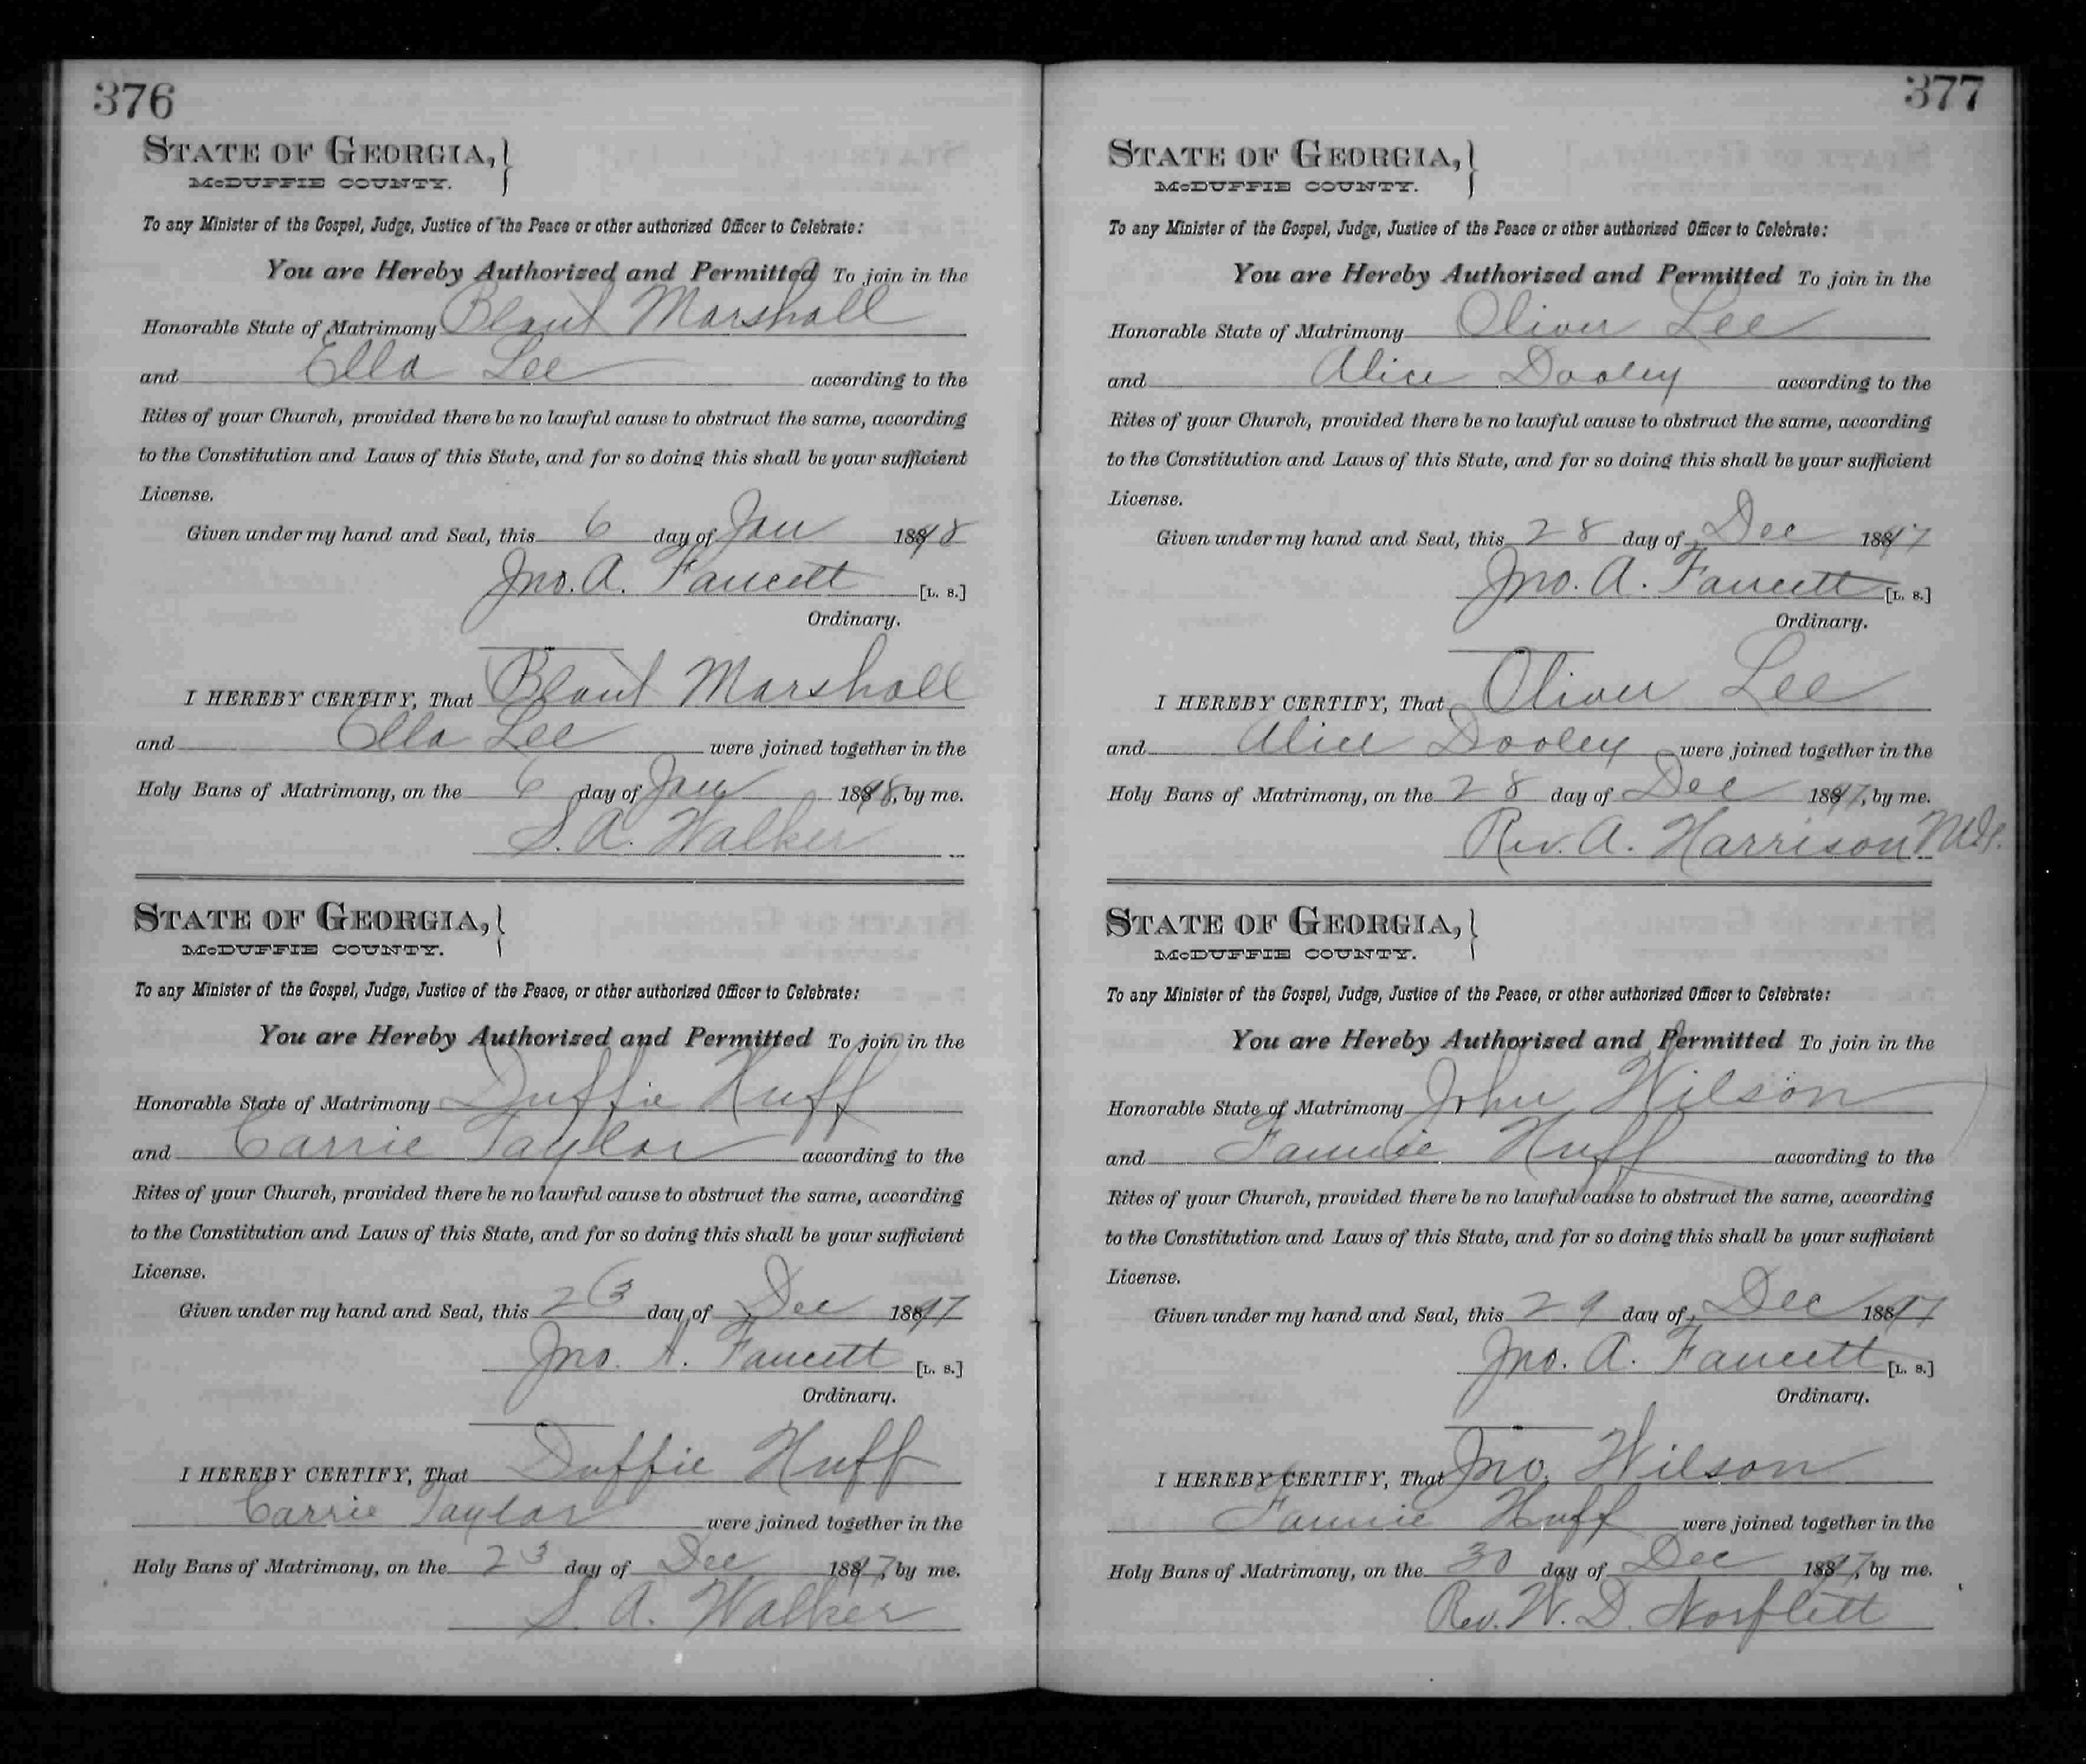 376
STATE OF GEORGIA,
McDUFFIE COUNTY.
To any Minister of the Gospel, Judge, Justice of the Peace or other authorized Officer to Celebrate:
You are Hereby Authorized and Permitted To join in the
Honorable State of Matrimony Blant Marshall
and Ella Lee according to the
Rites of your Church, provided there be no lawful cause to obstruct the same, according
to the Constitution and Laws of this State, and for so doing this shall be your sufficient
License.
Given under my hand and Seal, this 6 day of Jan 1898
Jno. A. Faucett [L. S.]
Ordinary.
I HEREBY CERTIFY, That Blant Marshall
and Ella Lee were joined together in the
Holy Bans of Matrimony, on the 6 day of Jan 1898, by me.
S. A. Walker
STATE OF GEORGIA,
McDUFFIE COUNTY.
To any Minister of the Gospel, Judge, Justice of the Peace, or other authorized Officer to Celebrate:
You are Hereby Authorized and Permitted To join in the
Honorable State of Matrimony Duffie Huff
and Carrie Taylor according to the
Rites of your Church, provided there be no lawful cause to obstruct the same, according
to the Constitution and Laws of this State, and for so doing this shall be your sufficient
License.
Given under my hand and Seal, this 23 day of Dec 1897
Jno. A. Faucett [L. S.]
Ordinary.
I HEREBY CERTIFY, That Duffie Huff
Carrie Taylor were joined together in the
Holy Bans of Matrimony, on the 23 day of Dec 1897, by me.
S. A. Walker
377
STATE OF GEORGIA,
McDUFFIE COUNTY.
To any Minister of the Gospel, Judge, Justice of the Peace or other authorized Officer to Celebrate:
You are Hereby Authorized and Permitted To join in the
Honorable State of Matrimony Oliver Lee
and Alice Dooley according to the
Rites of your Church, provided there be no lawful cause to obstruct the same, according
to the Constitution and Laws of this State, and for so doing this shall be your sufficient
License.
Given under my hand and Seal, this 28 day of Dec 1897
Jno. A. Faucett [L. S.]
Ordinary.
I HEREBY CERTIFY, That Oliver Lee
and Alice Dooley were joined together in the
Holy Bans of Matrimony, on the 28 day of Dec 1897, by me.
Rev. A. Harrison
STATE OF GEORGIA,
McDUFFIE COUNTY.
To any Minister of the Gospel, Judge, Justice of the Peace, or other authorized Officer to Celebrate:
You are Hereby Authorized and Permitted To join in the
Honorable State of Matrimony John Wilson
and Fannie Huff according to the
Rites of your Church, provided there be no lawful cause to obstruct the same, according
to the Constitution and Laws of this State, and for so doing this shall be your sufficient
License.
Given under my hand and Seal, this 29 day of Dec 1897
Jno. A. Faucett [L. S.]
Ordinary.
I HEREBY CERTIFY, That Jno. Wilson
Fannie Huff were joined together in the
Holy Bans of Matrimony, on the 30 day of Dec 1897, by me.
Rev. W. D. Norflett